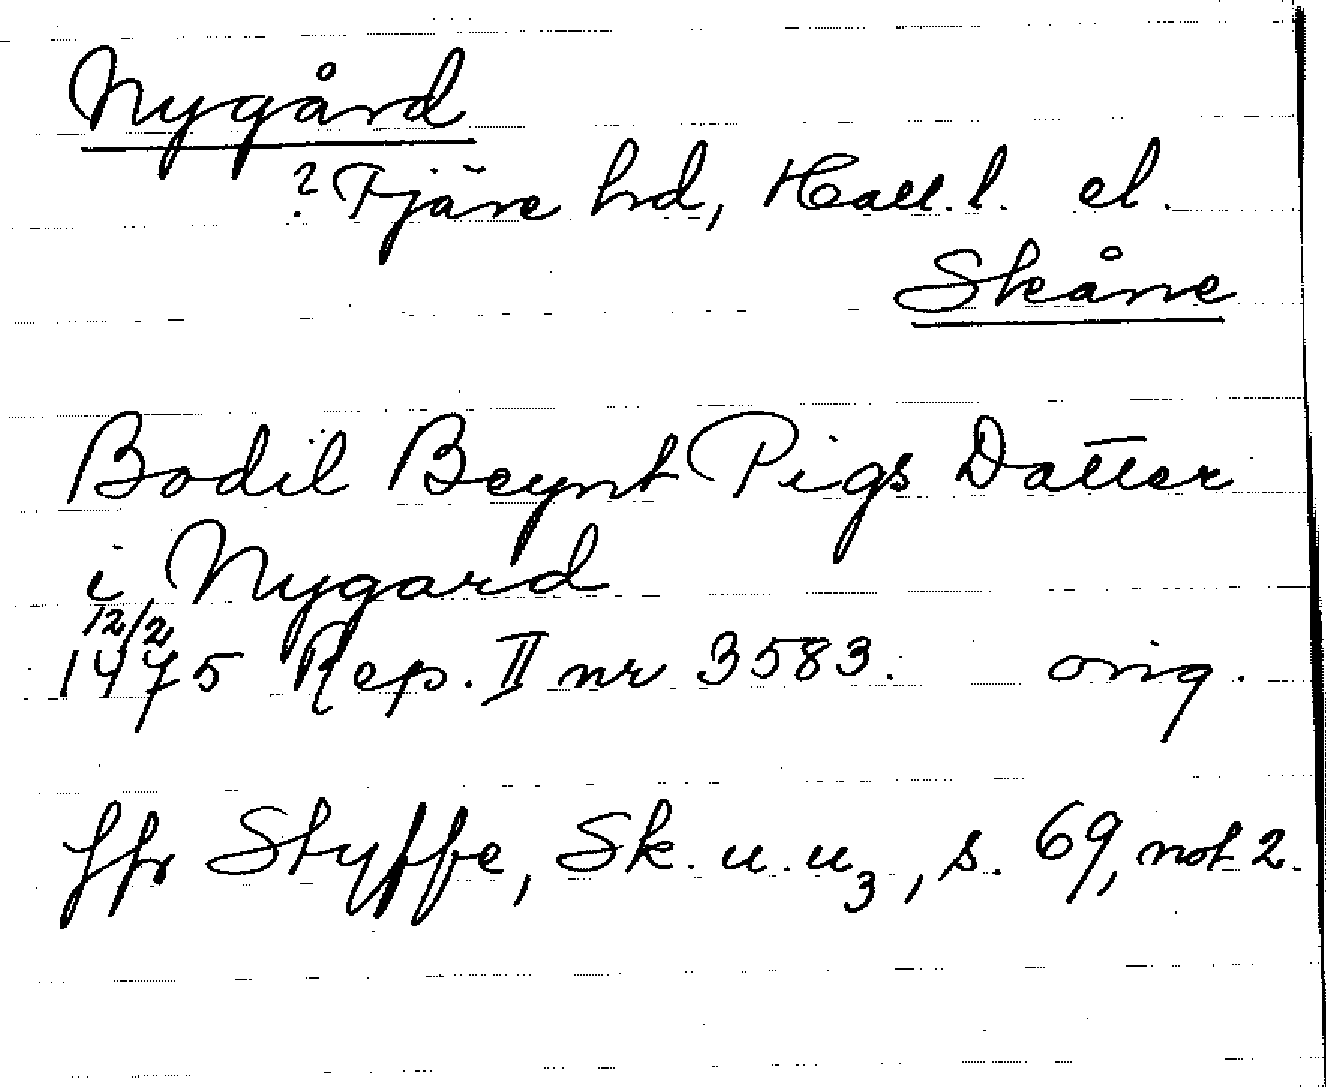 Nygård
? Fjäre hd, Hall.l. el.
Skåne
Bodil Beynt Pigs Datter
i Nygard
12/2
1475 Rep. II nr 3583. orig.
Jfr Styffe, Sk. u. u₃, s. 69, not 2.